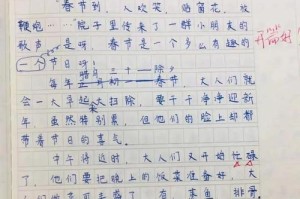 春节到，人欢笑，贴窗花，放
鞭炮……”院子里传来了一群小朋友的
歌声。是呀，春节是一个多么有趣的
一个节日呀！
腊月三十除夕
每年春节，大人们就
会一大早起来大扫除，要干干净净迎新
年。虽然特别累，但他们的脸上却都
带着节日的喜气。
中午将近时，大人们又开始忙碌
了，他们要把晚上的饭菜准备好，大
有 菜鱼 排骨